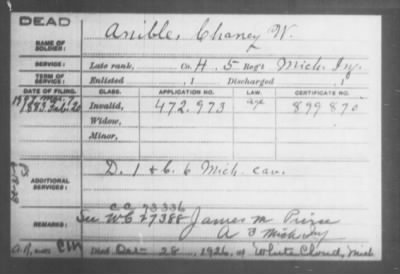 DEAD
NAME OF SOLDIER: Anible, Chaney W.
SERVICE: Late rank, Co. H. 5 Reg't Mich. Inf.
TERM OF SERVICE: Enlisted , 1 Discharged , 1
DATE OF FILING. CLASS. APPLICATION NO. LAW. CERTIFICATE NO.
1883 Feb. 20 Invalid, 472.973 age 899870
Widow,
Minor,
ADDITIONAL SERVICES: D. 1 & C. 6 Mich. cav.
C C 73336
REMARKS: See W C 77388 James M
A 3 Mich Inf
Died Dec 28, 1926, at White Cloud, Mich